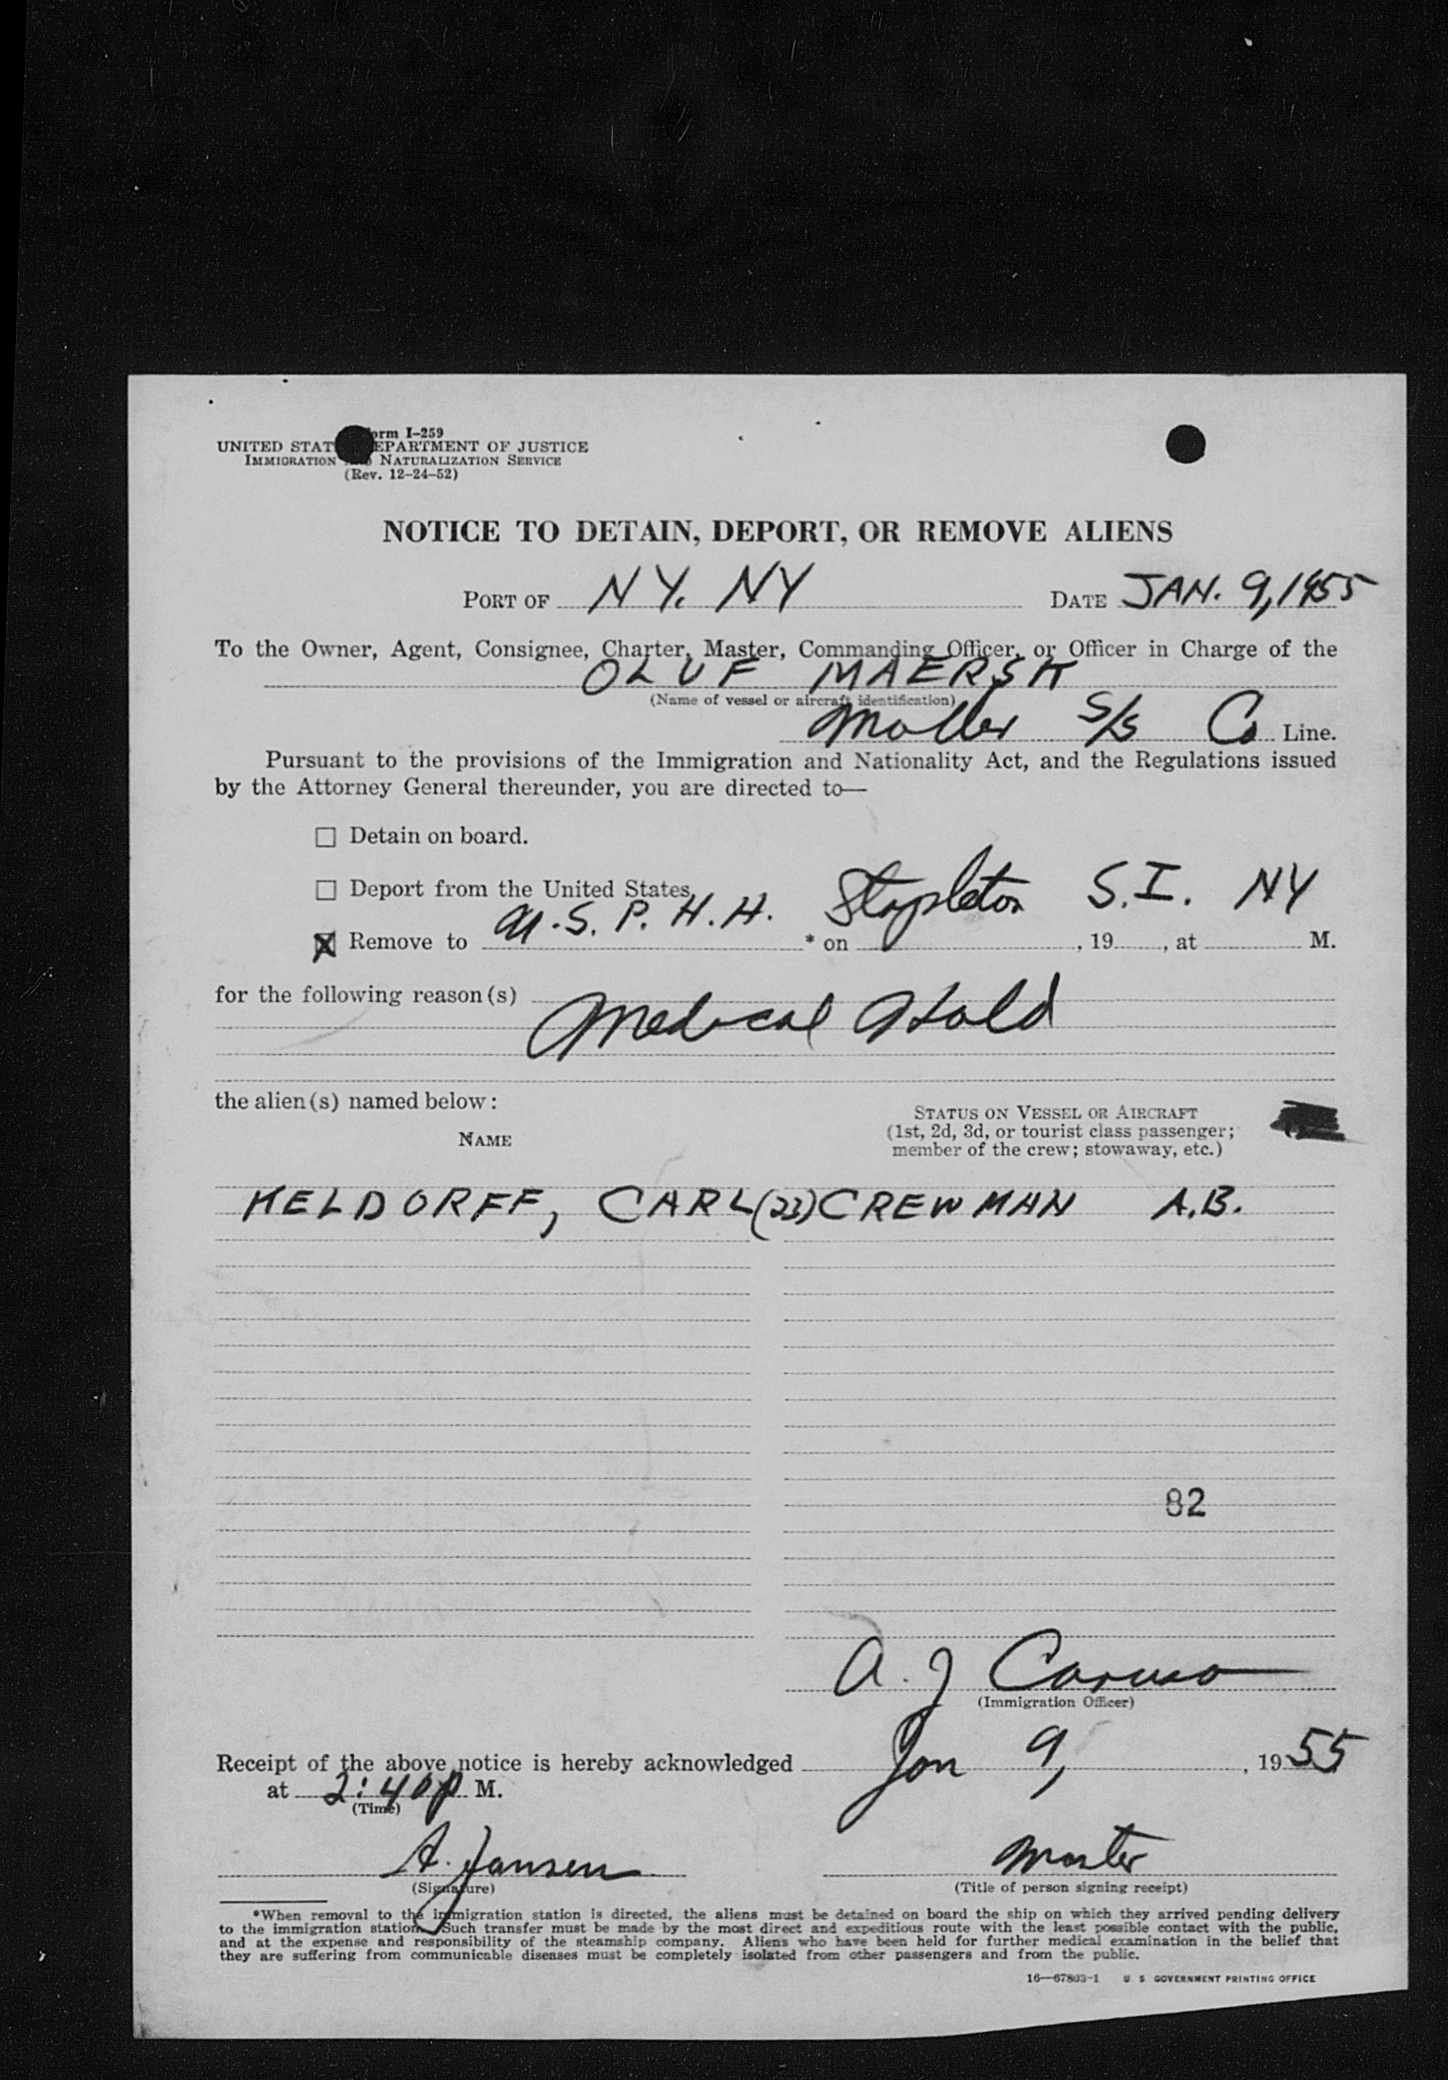 Form I-259
UNITED STATES DEPARTMENT OF JUSTICE
IMMIGRATION AND NATURALIZATION SERVICE
(Rev. 12-24-52)
NOTICE TO DETAIN, DEPORT, OR REMOVE ALIENS
PORT OF NY. NY DATE JAN. 9, 1955
To the Owner, Agent, Consignee, Charter, Master, Commanding Officer, or Officer in Charge of the
OLUF MAERSK
(Name of vessel or aircraft identification)
Moller S/S Co Line.
Pursuant to the provisions of the Immigration and Nationality Act, and the Regulations issued
by the Attorney General thereunder, you are directed to—
☐ Detain on board.
☐ Deport from the United States.
☒ Remove to U.S.P.H.H. * on Stapleton S.I. NY , 19 , at M.
for the following reason(s) Medical Hold
the alien(s) named below:
NAME
STATUS ON VESSEL OR AIRCRAFT
(1st, 2d, 3d, or tourist class passenger;
member of the crew; stowaway, etc.)
KELDORFF, CARL (23) CREWMAN A.B.
82
A. J Caruso
(Immigration Officer)
Receipt of the above notice is hereby acknowledged Jan 9, , 1955
at 2:40 p M.
(Time)
A. Jansen Master
(Signature) (Title of person signing receipt)
*When removal to the immigration station is directed, the aliens must be detained on board the ship on which they arrived pending delivery
to the immigration station. Such transfer must be made by the most direct and expeditious route with the least possible contact with the public,
and at the expense and responsibility of the steamship company. Aliens who have been held for further medical examination in the belief that
they are suffering from communicable diseases must be completely isolated from other passengers and from the public.
16—67803-1 U. S. GOVERNMENT PRINTING OFFICE